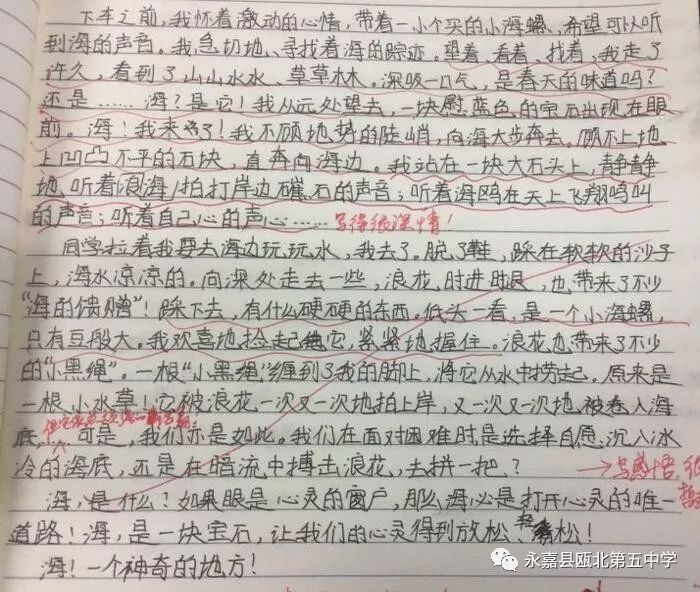 下车之前,我怀着激动的心情,带着一小个买的小海螺、希望可以听
到海的声音。我急切地、寻找着海的踪迹。望着、看着、找着,我走了
许久,看到了山山水水、草草林林。深吸一口气,是春天的味道吗?
还是……海?是它!我从远处望去,一块慰蓝色的宝石出现在眼
前。海!我来了!我不顾地势的陡峭,向海大步奔去。顾不上地
上凹凸不平的石块,直奔向海边。我站在一块大石头上,静静
地听着浪海拍打岸边礁石的声音;听着海鸥在天上飞翔鸣叫
的声音;听着自己心的声心……写得很深情!
同学拉着我要去海边玩玩水,我去了。脱了鞋,踩在软软的沙子
上,海水凉凉的。向深处走去一些,浪花时进时退,也带来了不少
“海的馈赠”!踩下去,有什么硬硬的东西。低头一看,是一个小海螺,
只有豆般大。我欢喜地捡起它,紧紧地握住。浪花也带来了不少
的“小黑绳”。一根“小黑绳”缠到了我的脚上,将它从水中捞起。原来是
一根小水草!它被浪花一次又一次地拍上岸,又一次又一次地被卷入海
底,可是,我们亦是如此。我们在面对困难时是选择自愿沉入冰
冷的海底,还是在暗流中搏击浪花,去拼一把?→写感悟,很
海,是什么?如果眼是心灵的窗户,那么海必是打开心灵的唯一
道路!海,是一块宝石,让我们的心灵得到放松、轻松!
海!一个神奇的地方!
永嘉县瓯北第五中学